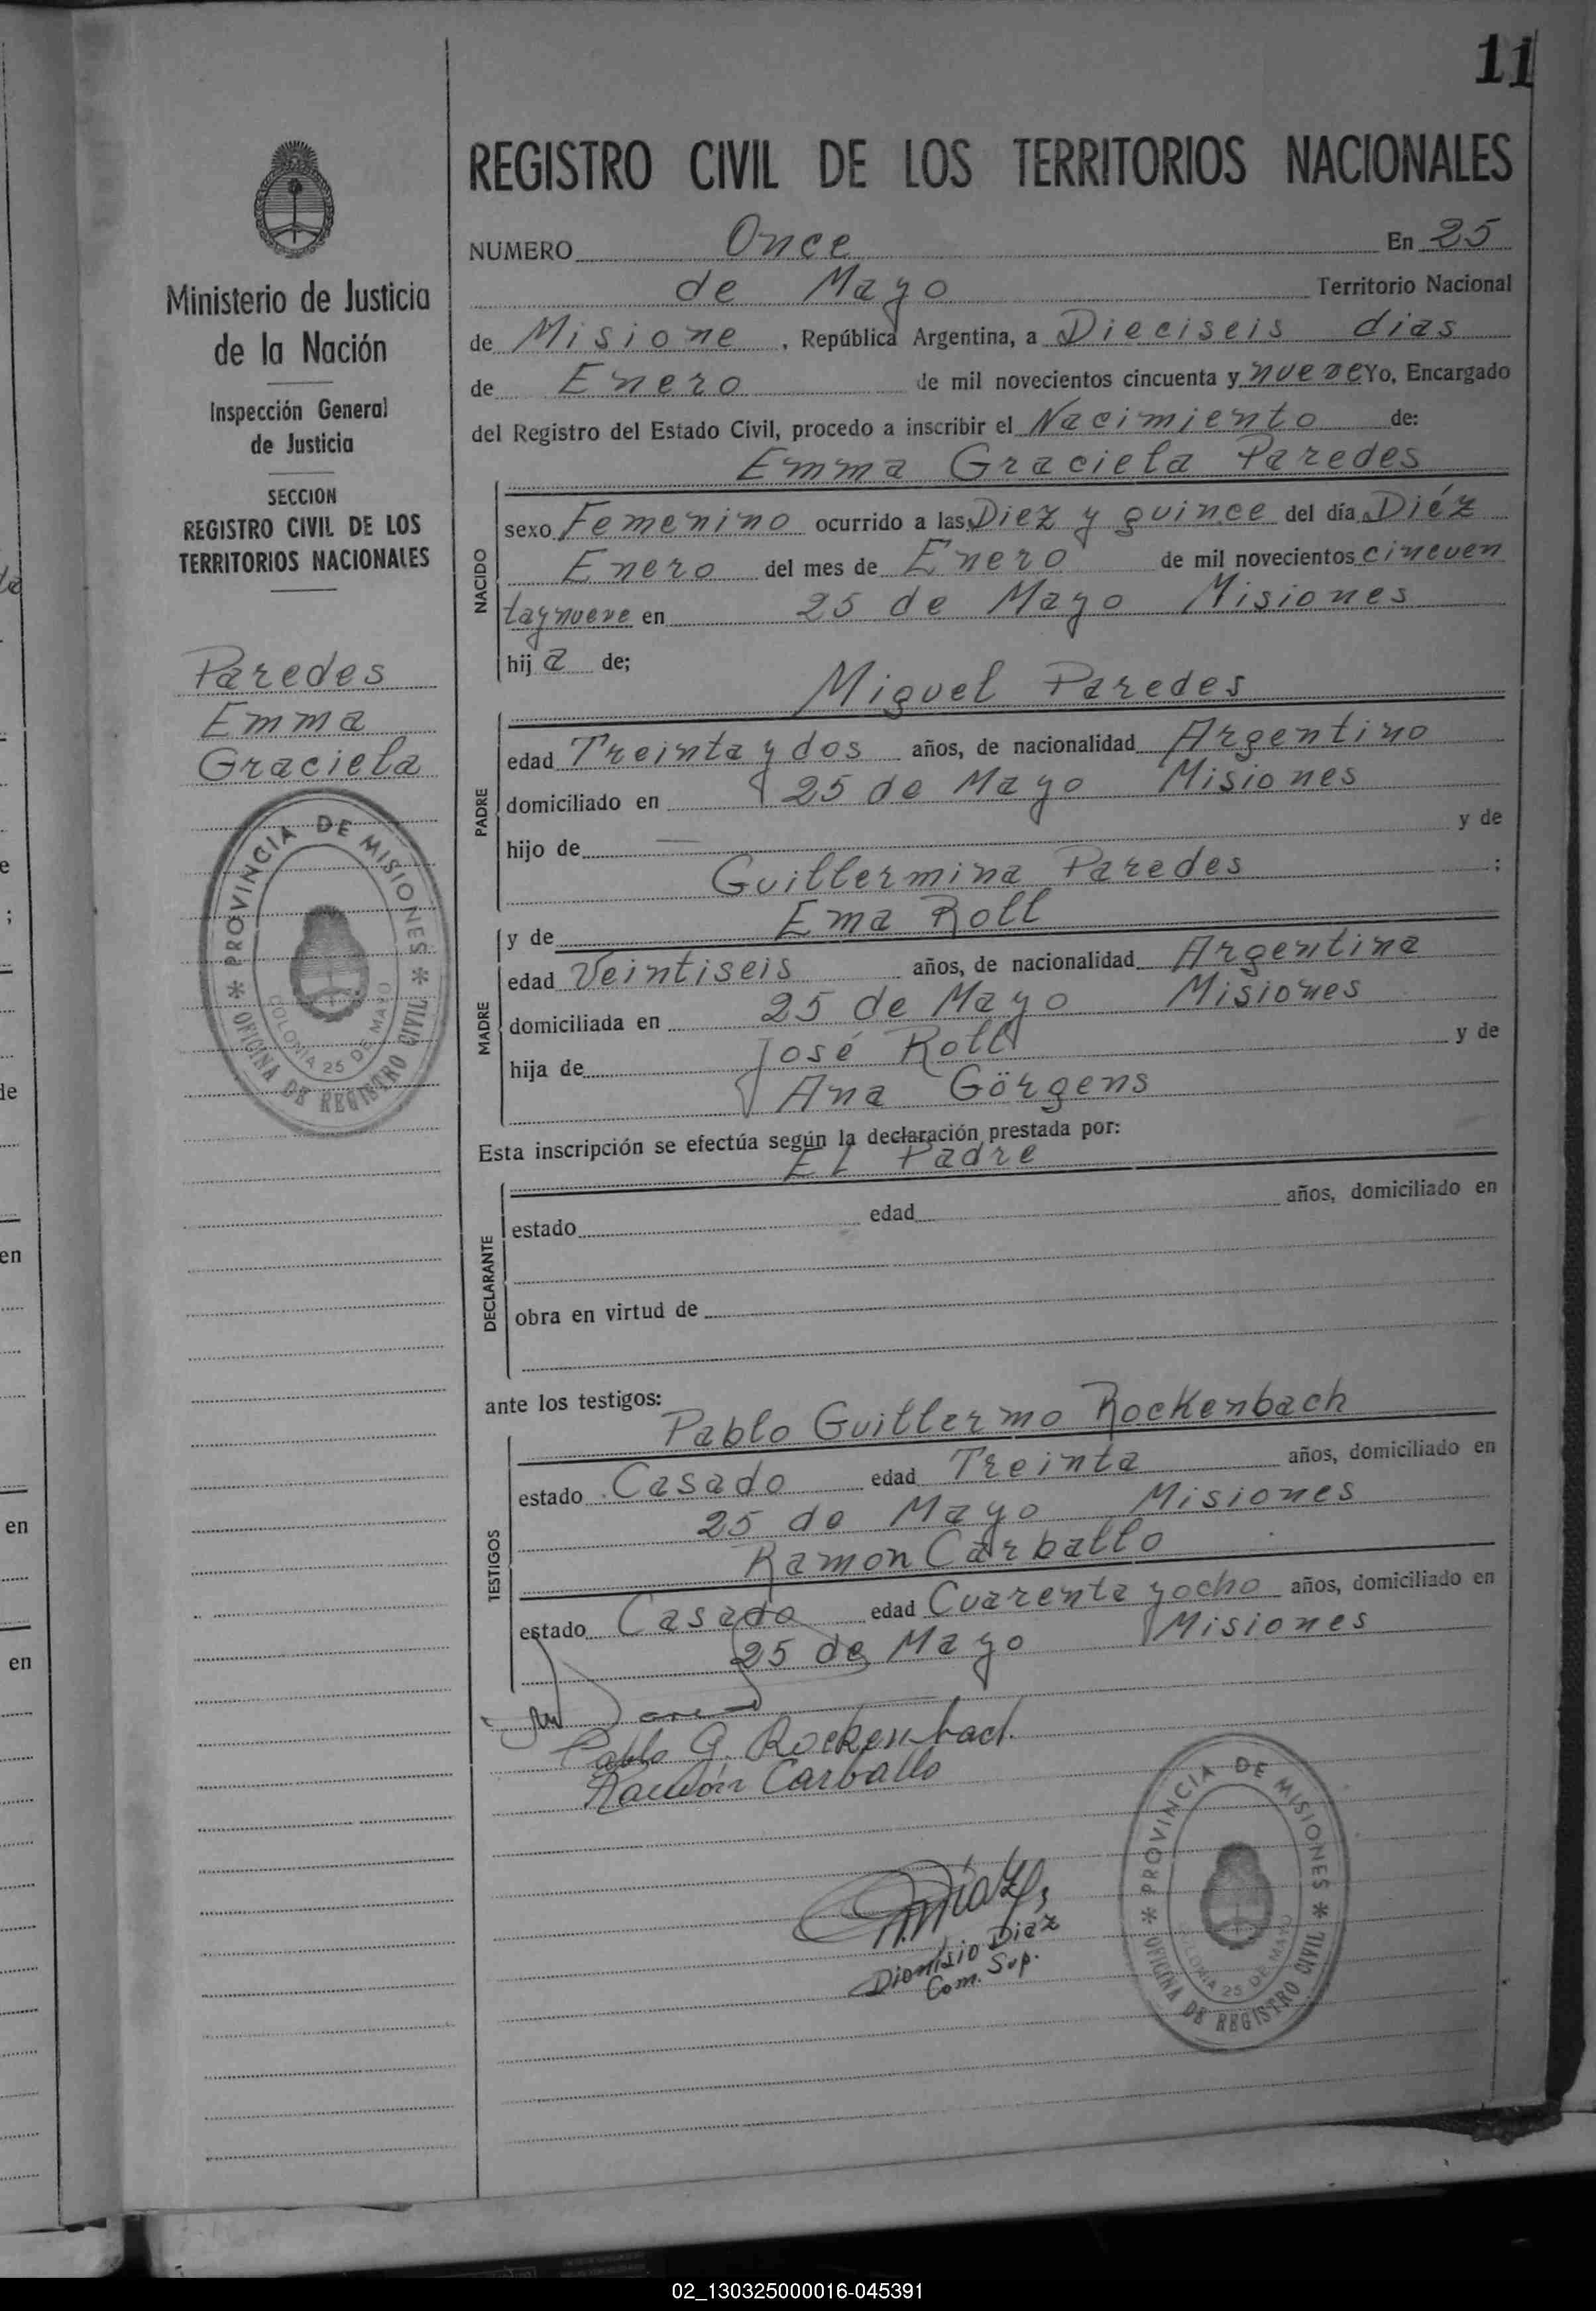 11
REGISTRO CIVIL DE LOS TERRITORIOS NACIONALES
NUMERO Once En 25
de Mayo Territorio Nacional
de Misione , República Argentina, a Dieciseis dias
de Enero de mil novecientos cincuenta y nueve Yo, Encargado
del Registro del Estado Civil, procedo a inscribir el Nacimiento de:
Emma Graciela Paredes
NACIDO
sexo Femenino ocurrido a las Diez y quince del día Diéz
Enero del mes de Enero de mil novecientos cincuen
taynueve en 25 de Mayo Misiones
hij a de;
Miguel Paredes
PADRE
edad Treinta y dos años, de nacionalidad Argentino
domiciliado en 25 de Mayo Misiones
hijo de — y de
Guillermina Paredes ;
y de Ema Roll
MADRE
edad Veintiseis años, de nacionalidad Argentina
domiciliada en 25 de Mayo Misiones
hija de José Roll y de
Ana Görgens
Esta inscripción se efectúa según la declaración prestada por:
El Padre
DECLARANTE
estado edad años, domiciliado en
obra en virtud de
ante los testigos:
Pablo Guillermo Rockenbach
TESTIGOS
estado Casado edad Treinta años, domiciliado en
25 de Mayo Misiones
Ramon Carballo
estado Casado edad Cuarenta yocho años, domiciliado en
25 de Mayo Misiones
Pablo G. Rockenbach.
Ramón Carballo
Diaz
Dionisio Diaz
Com. Sup.
PROVINCIA DE MISIONES
OFICINA DE REGISTRO CIVIL
COLONIA 25 DE MAYO
Ministerio de Justicia
de la Nación
Inspección General
de Justicia
SECCION
REGISTRO CIVIL DE LOS
TERRITORIOS NACIONALES
Paredes
Emma
Graciela
PROVINCIA DE MISIONES
OFICINA DE REGISTRO CIVIL
COLONIA 25 DE MAYO
e
;
de
en
en
en
02_130325000016-045391